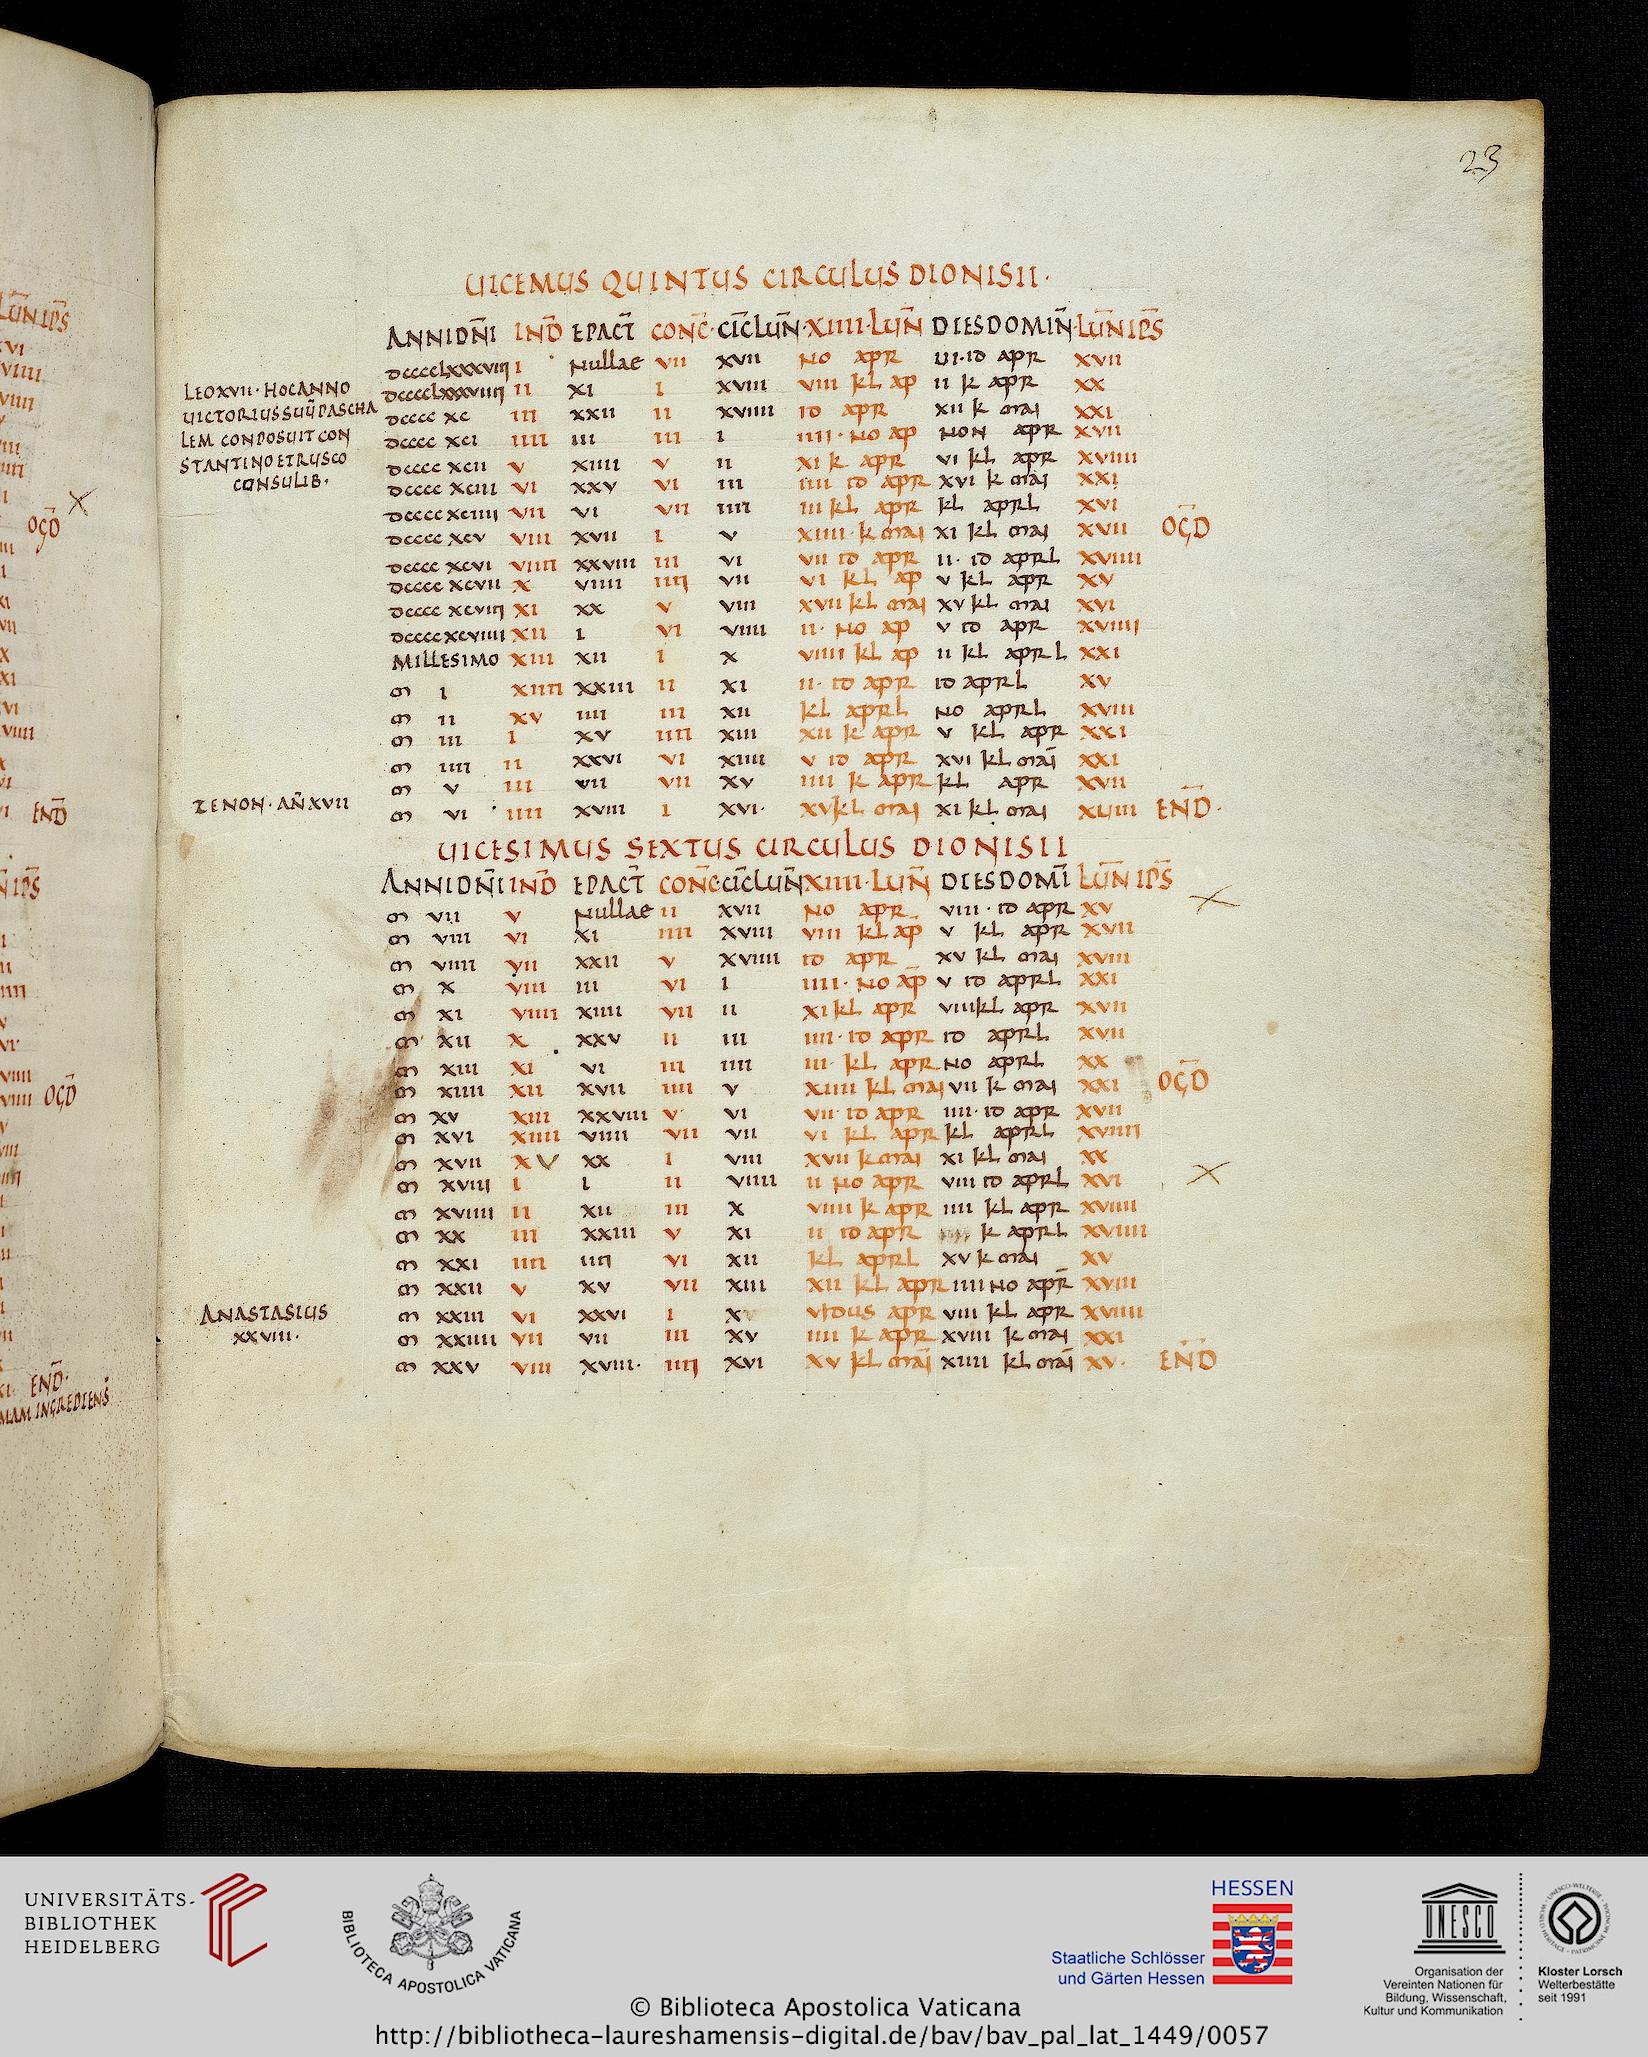 23
UICEMUS QUINTUS CIRCULUS DIONISII·
ANNIDN̄I IND̄ EPACT̄ CONC̄· CĪCLUN̄· XIIII·LUN̄ DIESDOMIN̄· LUN̄ IP̄S
dcccclxxxviii I Nullae VII XVII NO APR UII·ID APR XVII
dcccclxxxviiii II XI I XVIII VIII KL AP II K APR XX
dcccc xc III XXII II XVIIII ID APR XII K MAI XXI
dcccc xci IIII III III I IIII·NO AP NON APR XVII
dcccc xcii V XIIII V II XI K APR VI KL APR XVIIII
dcccc xciii VI XXV VI III IIII ID APR XVI K MAI XXI
dcccc xciiii VII VI VII IIII III KL APR KL APRL XVI
dcccc xcv VIII XVII I V XIIII·K MAI XI KL MAI XVII OGD̄
dcccc xcvi VIIII XXVIII III VI VII ID APR II·ID APRL XVIIII
dcccc xcvii X VIIII IIII VII VI KL AP V KL APR XV
dcccc xcviii XI XX V VIII XVII KL MAI XV KL MAI XVI
dcccc xcviiii XII I VI VIIII II·NO AP V ID APR XVIIII
MILLESIMO XIII XII I X VIIII KL AP II KL APRL XXI
M I XIIII XXIII II XI II·ID APR ID APRL XV
M II XV IIII III XII KL APRL NO APRL XVIII
M III I XV IIII XIII XII K APR V KL APR XXI
M IIII II XXVI VI XIIII V ID APR XVI KL MAI XXI
M V III VII VII XV IIII K APR KL APR XVII
M VI IIII XVIII I XVI· XV KL MAI XI KL MAI XUIIII END̄·
LEO XVII·HOC ANNO
UICTORIUS SUŪ PASCHA
LEM CONPOSUIT CON
STANTINO ET RUSCO
CONSULIB·
ZENON·AN̄ XVII
UICESIMUS SEXTUS CIRCULUS DIONISII
ANNIDN̄I IND̄ EPACT̄ CONC̄· CĪCLUN̄ XIIII·LUN̄ DIESDOMĪ LUN̄ IP̄S
M VII V Nullae II XVII NO APR VIII·ID APR XV
M VIII VI XI IIII XVIII VIII KL AP V KL APR XVII
M VIIII VII XXII V XVIIII ID APR XV KL MAI XVIII
M X VIII III VI I IIII·NO AP̄ V ID APRL XXI
M XI VIIII XIIII VII II XI KL APR VIIII KL APR XVII
M XII X XXV II III IIII·ID APR ID APRL XVII
M XIII XI VI III IIII III·KL APR NO APRL XX
M XIIII XII XVII IIII V XIIII KL MAI VII K MAI XXI OGD̄
M XV XIII XXVIII V VI VII·ID APR IIII·ID APR XVII
M XVI XIIII VIIII VII VII VI KL APR KL APRL XVIIII
M XVII XV XX I VIII XVII K MAI XI KL MAI XX
M XVIII I I II VIIII II NO APR VIII ID APRL XVI
M XVIIII II XII III X VIIII K APR IIII KL APR XVIIII
M XX III XXIII V XI II ID APR K APRL XVIIII
M XXI IIII IIII VI XII KL APRL XV K MAI XV
M XXII V XV VII XIII XII KL APR IIII NO APR̄ XVIII
M XXIII VI XXVI I X V IDUS APR VIII KL APR XVIIII
M XXIIII VII VII III XV IIII K APR XVIII K MAI XXI
M XXV VIII XVIII· IIII XVI XV KL MAĪ XIIII KL MAĪ XV· END̄
ANASTASIUS
XXVIII·
LUN̄ IP̄S
OGD̄
END̄
N̄ IP̄S
OGD̄
END̄·
MAM INGREDIENS̄
UNIVERSITÄTS-
BIBLIOTHEK
HEIDELBERG
BIBLIOTECA APOSTOLICA VATICANA
HESSEN
Staatliche Schlösser
und Gärten Hessen
UNESCO
Organisation der
Vereinten Nationen für
Bildung, Wissenschaft,
Kultur und Kommunikation
Kloster Lorsch
Welterbestätte
seit 1991
© Biblioteca Apostolica Vaticana
http://bibliotheca-laureshamensis-digital.de/bav/bav_pal_lat_1449/0057